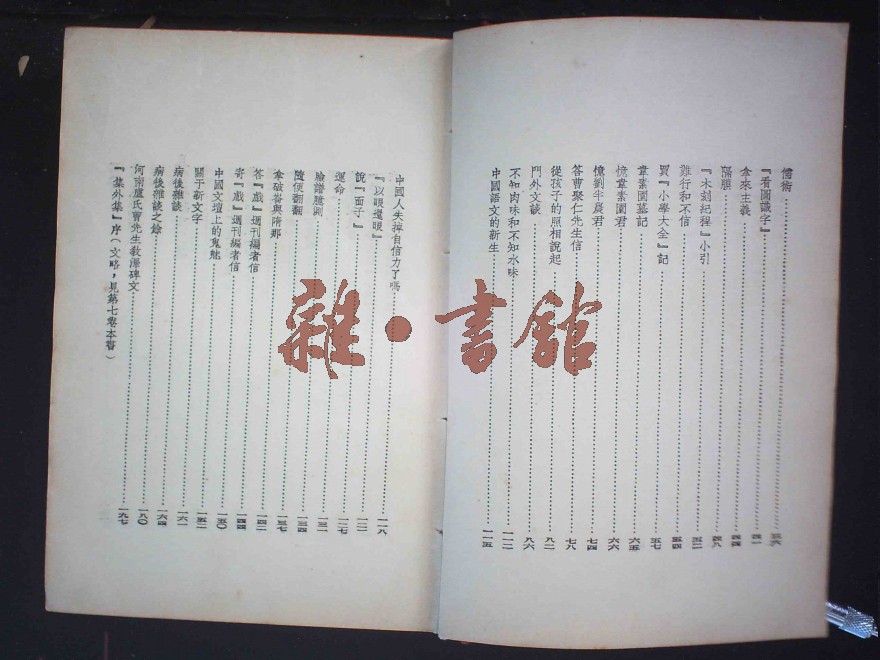 儒術 三六
『看圖識字』 四一
拿來主義 四四
隔膜 四八
『木刻紀程』小引 五二
難行和不信 五四
買『小學大全』記 五七
韋素園墓記 六五
憶韋素園君 六六
憶劉半農君 七四
答曹聚仁先生信 七八
從孩子的照相說起 八二
門外文談 八六
不知肉味和不知水味 一一二
中國語文的新生 一一五
中國人失掉自信力了嗎 一一八
『以眼還眼』 一二一
說『面子』 一二七
運命 一三一
臉譜臆測 一三四
隨便翻翻 一三七
拿破崙與隋那 一四二
答『戲』週刊編者信 一四四
寄『戲』週刊編者信 一五〇
中國文壇上的鬼魅 一五二
關于新文字 一六一
病後雜談 一六四
病後雜談之餘 一八〇
河南盧氏曹先生教澤碑文 一九七
『集外集』序(文略，見第七卷本書)
雜·書館